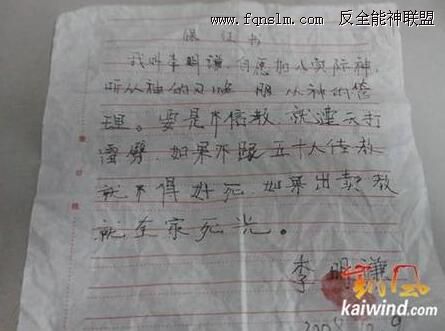 www.fqnslm.com 反全能神联盟
保证书
我叫李明谦,自愿加入实际神,
听从神的 服从神的管
理。要是不信教,就遭天打
雷劈,如果不跟五十人传教
就不得好死,如果出卖教
就全家死光。
李明谦
kaiwind.com